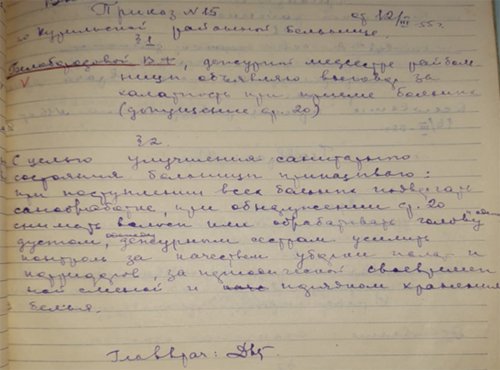 Приказ N 15 от 12/III-55 г.
по Курильской районной больнице.
§ 1
Белобородовой В Ф, дежурной медсестре райболь
ницы объявляю выговор за
халатность при приеме больных
(допущение ф. 20)
§ 2.
С целью улучшения санитарного
состояния больницы приказываю:
при поступлении всех больных подвергать
санобработке, при обнаружении ф. 20
снимать волосы или обрабатывать голову
дустом, дежурным сестрам усилить
контроль за качеством уборки палат и
коридоров, за периодической своевремен
ной сменой и порядком хранения
белья.
Главврач: